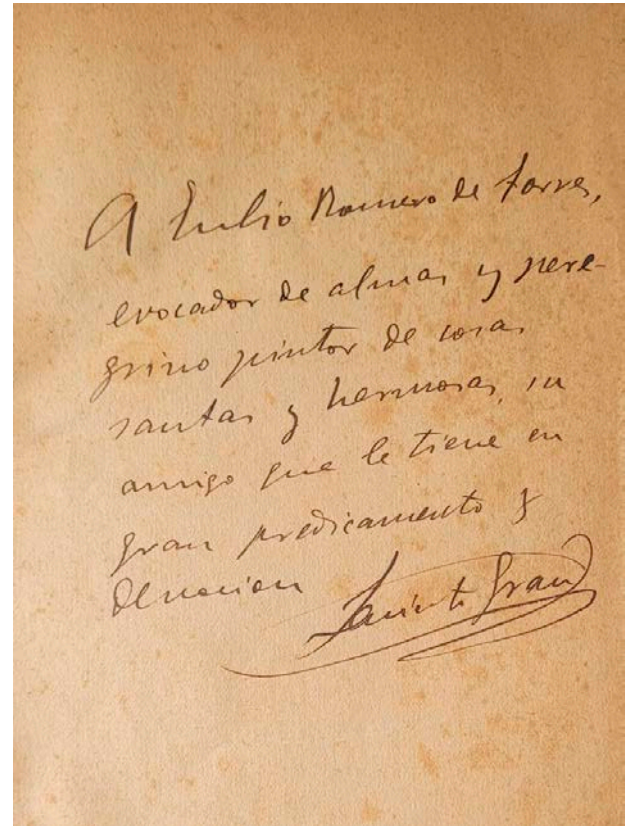 A Julio Romero de Torres,
evocador de almas y pere-
grino pintor de cosas
santas y hermosas, su
amigo que le tiene en
gran predicamento y
devocion
Jacinto Grau